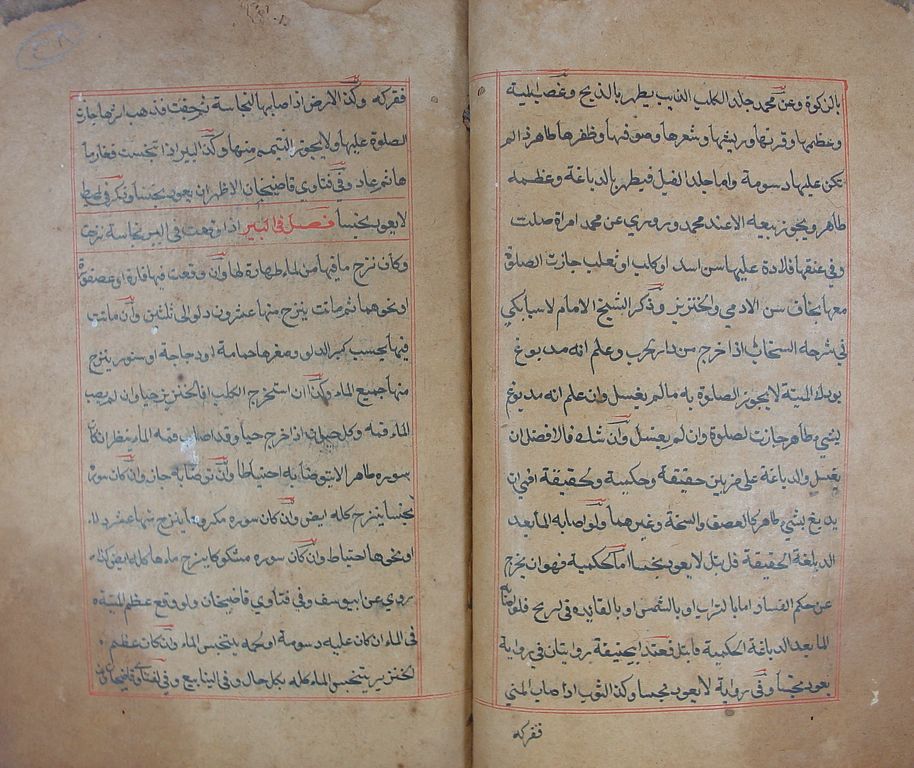 بالزكوة وعن محمد جلد الكلب الذيب يطهر بالذبح وعصب الميتة
وعظمها وقرنها وريشها وشعرها وصوفها وظفرها طاهر اذا لم
تكن عليها دسومة واما جلد الفيل فيطهر بالدباغة وعظمه
طاهر ويجوز بيعه الا عند محمد وروي عن محمد امراة صلت
وفي عنقها قلادة عليها سن اسد او كلب او ثعلب جازت الصلوة
معها بخلاف سن الادمي والخنزير وذكر الشيخ الامام لاسبابكي
في شرحه السنجاب اذا خرج من دار حرب وعلم انه مدبوغ
بودك الميتة لا يجوز الصلوة به ما لم يغسل وان علم انه مدبوغ
بشي طاهر جازت لصلوة وان لم يغسل وان شك فالافضل ان
يغسل والدباغة على ضربين حقيقة وحكمية وحقيقة اي ان
يدبغ بشي طاهر كالعصف والسبخة وغيرهما ولو اصابه الما بعد
الدباغة الحقيقة فابتل لا يعود نجسا اما الحكمية فهو ان يخرج
عن حكم الفساد اما بالتراب او بالشمس او بالقايه في لريح فلو اصابه
الما بعد الدباغة الحكمية فابتل فعند ابيحنيفة روايتان في رواية
يعود نجسا وفي رواية لا يعود نجسا وكذ الثوب اذا صاب المني
ففركه
ففركه وكذ الارض اذا صابها النجاسة ثم جفت فذهب اثرها جازت
الصلوة عليها ولا يجوز التيمم منها وكذ البير اذا تنجست فغار ما
ها ثم عاد وفي فتاوي قاضيخان الاظهر ان يعود نجسا وذكر في المحيط
لا يعود نجسا فصل في البير اذا وقعت في البير نجاسة نزحت
وكان نزح ما فيها من الماء طهارة لها وان وقعت فيها فارة او عصفورة
او نحوهما ثم ماتت ينزح منها عشرون دلو الى ثلثين وان ماتت
فيها بحسب كبر الدلو وصغرها حمامة او دجاجة او سنور ينزح
منها جميع الماء وكذا ان استخرج الكلب او الخنزير حيا وان لم يصب
الماء فمه وكل حيوان اذا خرج حيا وقد اصاب فمه الماء ينظر ان كان
سوره طاهر الا يتوضا به احتياطا وان توضا به جاز وان كان سوره
نجسا ينزح كله ايض وان كان سوره مكروها ينزح منها عشر دلا
او نحوها احتياط وان كان سوره مشكوكا ينزح ماءها كله ايض كذا
روي عن ابيوسف وفي فتاوي قاضيخان ولو وقع عظم الميتة
في الماء ان كان عليه دسومة او لحمه يتنجس الماء وان كان عظم
الخنزير يتنجس الماء كله بكل حال وفي الينابيع وفي لفتاوي قاضيخان